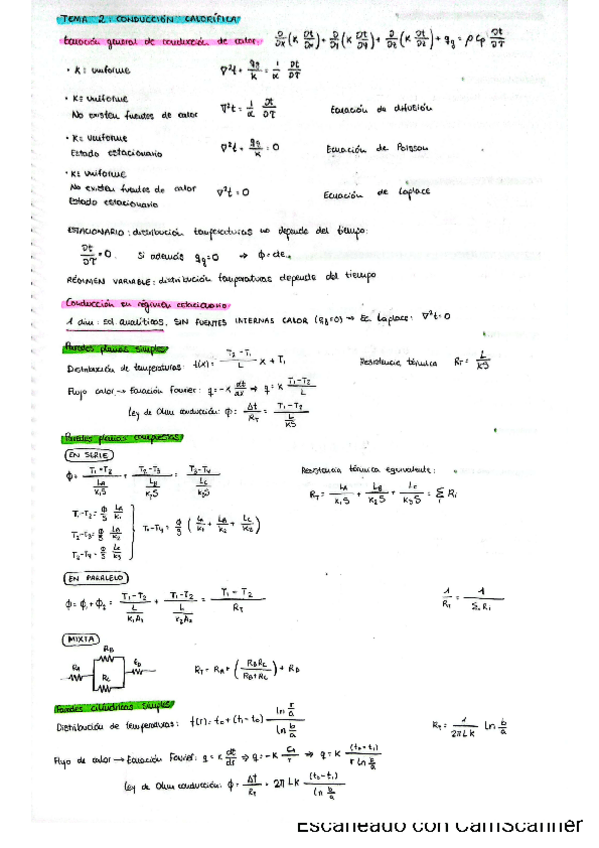 TEMA 2: CONDUCCIÓN CALORÍFICA
Ecuación general de conducción de calor: ∂/∂x (K ∂t/∂x) + ∂/∂y (K ∂t/∂y) + ∂/∂z (K ∂t/∂z) + q_g = ρ Cp ∂t/∂τ
· K = uniforme ∇²t + q_g/K = 1/α ∂t/∂τ
· K = uniforme
No existen fuentes de calor ∇²t = 1/α ∂t/∂τ Ecuación de difusión
· K = uniforme
Estado estacionario ∇²t + q_g/K = 0 Ecuación de Poisson
· K = uniforme
No existen fuentes de calor ∇²t = 0 Ecuación de Laplace
Estado estacionario
ESTACIONARIO: distribución temperaturas no depende del tiempo:
∂t/∂τ = 0. Si además q_g = 0 → ϕ = cte.
RÉGIMEN VARIABLE: distribución temperaturas depende del tiempo
Conducción en régimen estacionario
1 dim: sol. analíticas. SIN FUENTES INTERNAS CALOR (q_g=0) → Ec. Laplace: ∇²t = 0
Paredes planas simples
Distribución de temperaturas: t(x) = (T₂ - T₁)/L x + T₁ Resistencia térmica R_T = L/KS
Flujo calor → Ecuación Fourier: q = -K dt/dx ⇒ q = K (T₁-T₂)/L
Ley de Ohm conducción: ϕ = Δt/R_T = (T₁-T₂)/(L/KS)
Paredes planas compuestas
EN SERIE
Resistencia térmica equivalente:
R_T = L_A/K₁S + L_B/K₂S + L_C/K₃S = Σ Ri
EN PARALELO
ϕ = ϕ₁ + ϕ₂ = (T₁-T₂)/(L/K₁A₁) + (T₁-T₂)/(L/K₂A₂) = (T₁-T₂)/R_T
MIXTA
R_A R_B R_C R_D
R_T = R_A + (R_B R_C/(R_B+R_C)) + R_D
Paredes cilíndricas simples
Distribución de temperaturas: t(r) = t₀ + (t₁ - t₀) (ln r/a)/(ln b/a) R_T = 1/(2πLK) ln b/a
Flujo de calor → Ecuación Fourier:
Ley de Ohm conducción:
Escaneado con CamScanner